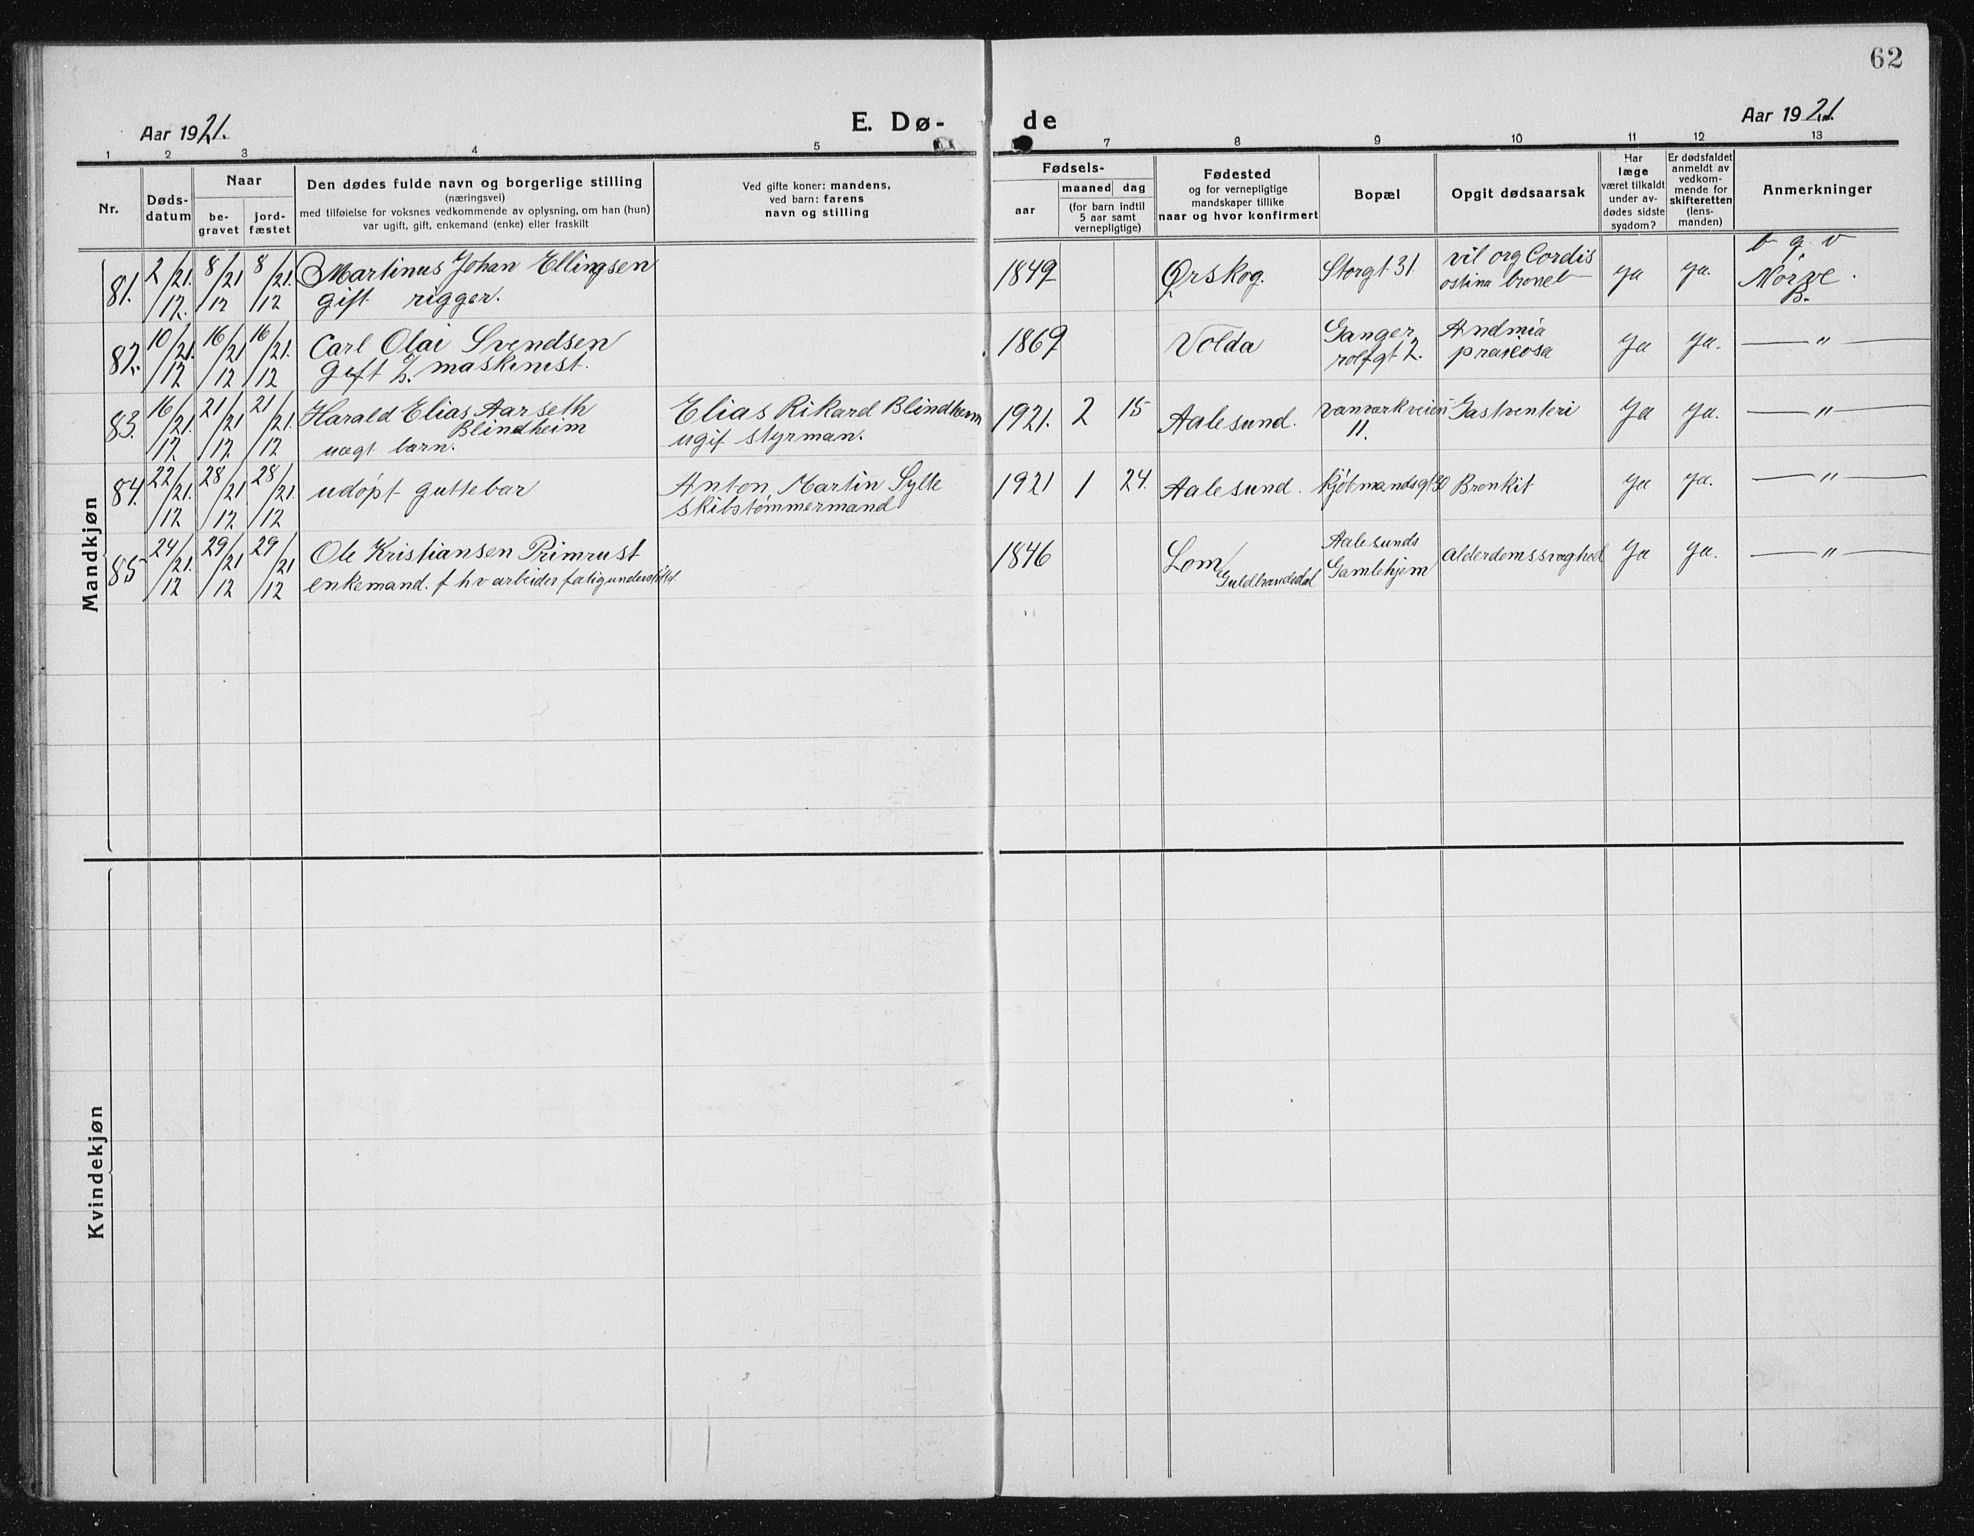 62
Aar 1921.
E. Dø-
de
Aar 1921.
1 2 3 4 5 7 8 9 10 11 12 13
Nr.
Døds-
datum
Naar
be-
gravet
jord-
fæstet
Den dødes fulde navn og borgerlige stilling
(næringsvei)
med tilføielse for voksnes vedkommende av oplysning, om han (hun)
var ugift, gift, enkemand (enke) eller fraskilt
Ved gifte koner: mandens,
ved barn: farens
navn og stilling
Fødsels-
aar
maaned dag
(for barn indtil
5 aar samt
vernepligtige)
Fødested
og for vernepligtige
mandskaper tillike
naar og hvor konfirmert
Bopæl
Opgit dødsaarsak
Har
læge
været tilkaldt
under av-
dødes sidste
sygdom?
Er dødsfaldet
anmeldt av
vedkom-
mende for
skifteretten
(lens-
manden)
Anmerkninger
Mandkjøn
81. 2/12 21. 8/12 21 8/12 21.
Martinus Johan Ellingsen
gift rigger.
1849
Ørskog.
Storgt 31.
vil org Cordis
ja
ja.
b g v
Nørve.
B.
82. 10/12 21. 16/12 21 16/12 21.
Carl Olai Svendsen
Gift 2. maskinist.
1869
Volda
Ganger
rolfgt 2.
ja
ja.
— " —
83. 16/12 21. 21/12 21 21/12 21.
Harald Elias Aarseth
Blindheim
uægt barn.
Elias Rikard Blindheim
ugif styrman.
1921. 2 15
Aalesund.
11.
Gastventeri
ja
ja.
— " —
84. 22/12 21. 28/12 21 28/12 21.
udøpt guttebar
Anton Martin Sylte
skibstømmermand
1921 1 24.
Aalesund.
kjøbmandsgt 30
Bronkit
ja
ja.
— " —
85 24/12 21. 29/12 21 29/12 21
Ole Kristiansen Primrust
enkemand. f h v arbeider fatigunderstøttet.
1846
Lom
Guldbrandsdal
Aalesunds
Gamlehjem
alderdomssvaghed
ja
ja.
— " —
Kvindekjøn